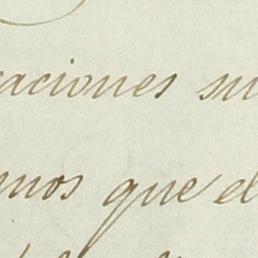 aciones su
mos que el